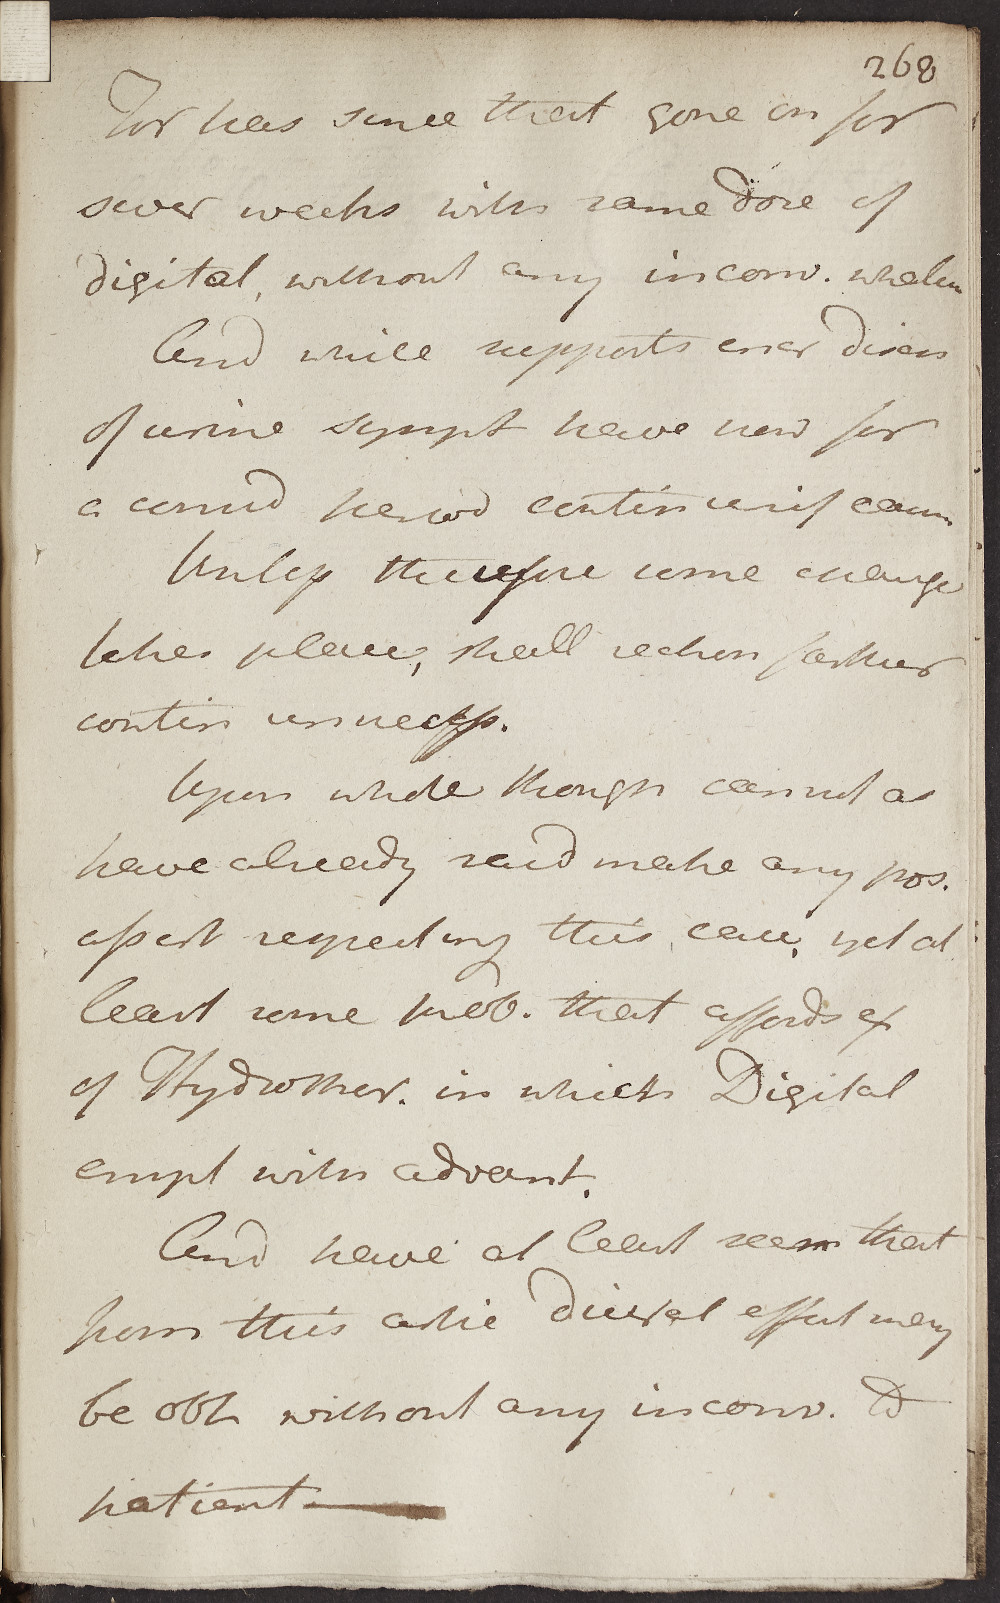 268
For has since that gone on for
sever weeks with same dose of
digital, without any inconv. whatev
And while supports encr discu
of urine sympt have now for
a consid period contin unif
Unless therefore some change
takes place, shall reckon farther
contin unnecess.
Upon whole though cannot as
have already said make any pos.
assert respecting this case, yet at
least some prob. that affords ex
of Hydrothor. in which Digital
empl with advant.
And have at least seen that
from this artic diuret effect may
be obt without any inconv. to
patient